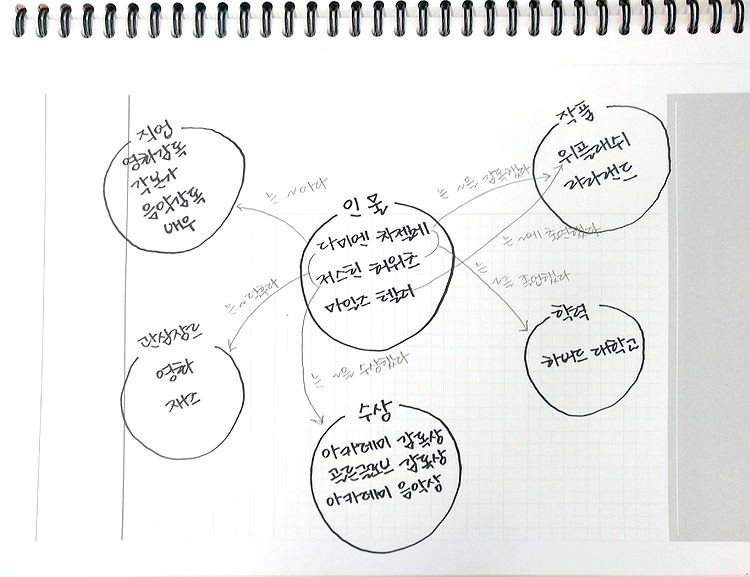 직업
영화감독
각본가
음악감독
배우
작품
위플래쉬
라라랜드
인물
다미엔 차젤레
저스틴 허위츠
마일즈 텔러
관심장르
영화
재즈
학력
하버드 대학교
수상
아카데미 감독상
골든글로브 감독상
아카데미 음악상
는 ~이다
는 ~을 감독했다
는 ~에 출연했다
는 ~를 졸업했다
는 ~을 수상했다